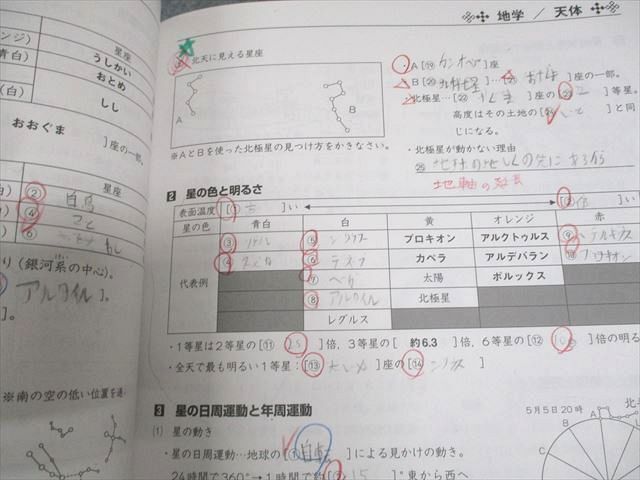 地学 / 天体
北天に見える星座
A
B
※AとBを使った北極星の見つけ方をかきなさい。
・A[⑲ カシオペヤ]座
・B[⑳ 北斗七星]…[㉑ おおぐま]座の一部。
・北極星…[㉒ こぐま]座の[㉓ 2]等星。
高度はその土地の[㉔ いど]と同
じになる。
・北極星が動かない理由
㉕
地軸の延長
2 星の色と明るさ
表面温度 [① 高]い [② 低]い
星の色 青白 白 黄 オレンジ 赤
代表例
③ リゲル ⑤ シリウス プロキオン アルクトゥルス ⑨
④ スピカ ⑥ デネブ カペラ アルデバラン ⑩
⑦ ベガ 太陽 ポルックス
⑧ アルタイル 北極星
レグルス
・1等星は2等星の[⑪ 2.5]倍, 3等星の[ 約6.3 ]倍, 6等星の[⑫ 100]倍の明る
・全天で最も明るい1等星:[⑬ おおいぬ]座の[⑭ シリウス]
3 星の日周運動と年周運動
(1) 星の動き
・星の日周運動…地球の[① 自転]による見かけの動き。
24時間で360°→1時間で約[② 15]°東から西へ
5月5日20時
北
A
B
C
ンジ) 星座
青白) うしかい
おとめ
(白) しし
おおぐま
]座の一部。
星座
② 白鳥
④ こと
⑥ わし
り(銀河系の中心)。
アルタイル ]。
]。
※南の空の低い位置を通